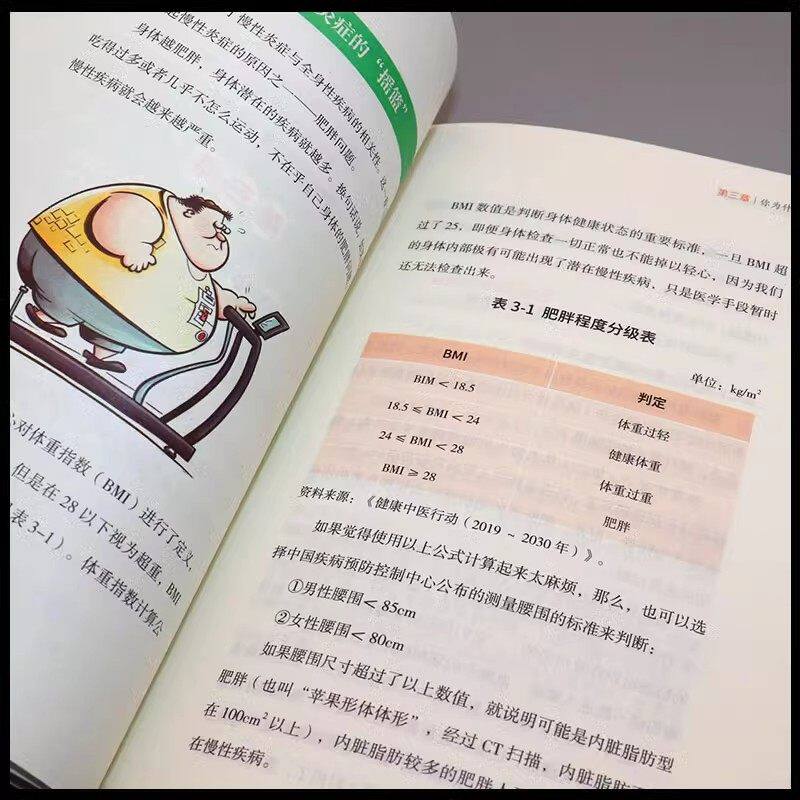 炎症的“摇篮”
慢性炎症与全身性疾病的相关性
慢性炎症的原因之一——肥胖问题。
身体越肥胖，身体潜在的疾病就越多。换句话说，
吃得过多或者几乎不怎么运动，不在乎自己身体的肥胖
慢性疾病就会越来越严重。
对体重指数（BMI）进行了定义，
但是在28以下视为超重，BMI
表3-1）。体重指数计算公
第三章 | 你为什
BMI 数值是判断身体健康状态的重要标准，一旦 BMI 超
过了 25，即便身体检查一切正常也不能掉以轻心，因为我们
的身体内部极有可能出现了潜在慢性疾病，只是医学手段暂时
还无法检查出来。
表 3-1 肥胖程度分级表
单位：kg/m²
BMI 判定
BIM < 18.5 体重过轻
18.5 ≤ BMI < 24 健康体重
24 ≤ BMI < 28 体重过重
BMI ≥ 28 肥胖
资料来源：《健康中医行动（2019 ~ 2030 年）》。
如果觉得使用以上公式计算起来太麻烦，那么，也可以选
择中国疾病预防控制中心公布的测量腰围的标准来判断：
①男性腰围< 85cm
②女性腰围< 80cm
如果腰围尺寸超过了以上数值，就说明可能是内脏脂肪型
肥胖（也叫“苹果形体体形”，经过 CT 扫描，内脏脂肪
在100cm²以上），内脏脂肪较多的肥胖
在慢性疾病。